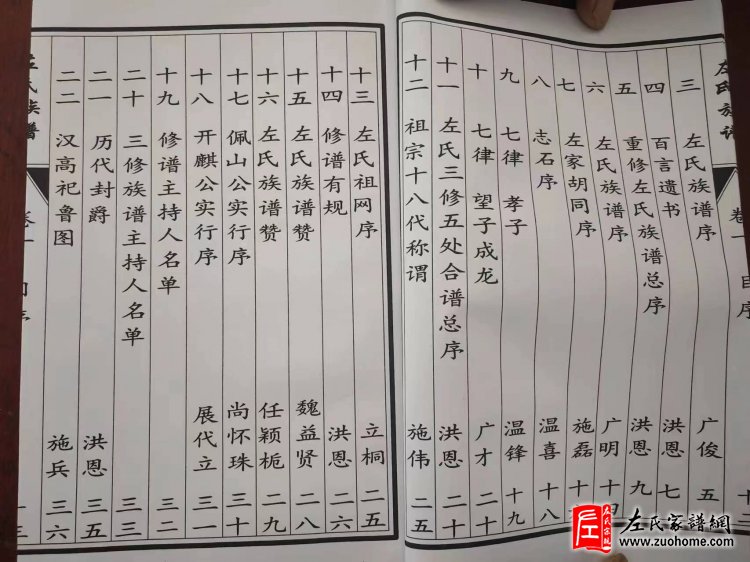 左氏族谱
卷一 目序
三 左氏族谱序 广俊 五
四 百言遗书 洪恩 七
五 重修左氏族谱总序 洪恩 九
六 左氏族谱序 广明 十
七 左家胡同序 施磊 十
八 志石序 温喜 十八
九 七律 孝子 温锋 十九
十 七律 望子成龙 广才 二十
十一 左氏三修五处合谱总序 洪恩 二十
十二 祖宗十八代称谓 施伟 二五
十三 左氏祖网序 立桐 二五
十四 修谱有规 洪恩 二六
十五 左氏族谱赞 魏益贤 二八
十六 左氏族谱赞 任颖栀 二九
十七 佩山公实行序 尚怀珠 三十
十八 开麒公实行序 展代立 三一
十九 修谱主持人名单 三二
二十 三修族谱主持人名单 三三
二一 历代封爵 洪恩 三五
二二 汉高祀鲁图 施兵 三六
氏族谱
卷一
左氏家譜網
www.zuohome.com